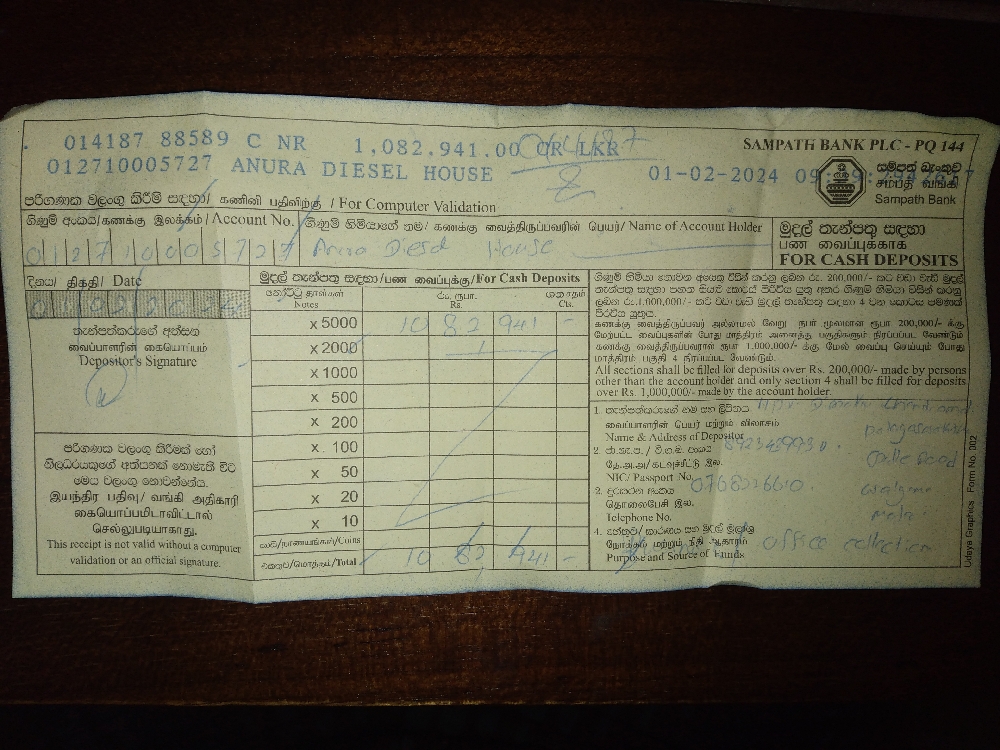 014187 88589 C NR 1,082,941.00 CR LKR
SAMPATH BANK PLC - PQ 144
012710005727 ANURA DIESEL HOUSE 01-02-2024
සම්පත් බැංකුව
சம்பத் வங்கி
Sampath Bank
පරිගණක වලංගු කිරීම් සඳහා/ கணினி பதிவிற்கு / For Computer Validation
ගිණුම් අංකය/கணக்கு இலக்கம் / Account No.
ගිණුම් හිමියාගේ නම/ கணக்கு வைத்திருப்பவரின் பெயர்/ Name of Account Holder
012710005727 Anura Diesel House
මුදල් තැන්පතු සඳහා
பண வைப்புக்காக
FOR CASH DEPOSITS
දිනය/ திகதி/ Date
තැන්පත්කරුගේ අත්සන
வைப்பாளரின் கையொப்பம்
Depositor's Signature
පරිගණක වලංගු කිරීමක් හෝ
නිලධරයකුගේ අත්සනක් නොමැති විට
මෙය වලංගු නොවන්නේය.
இயந்திர பதிவு/ வங்கி அதிகாரி
கையொப்பமிடாவிட்டால்
செல்லுபடியாகாது.
This receipt is not valid without a computer
validation or an official signature.
මුදල් තැන්පතු සඳහා/பண வைப்புக்கு/For Cash Deposits
නෝට්ටු தாள்கள்
Notes
රු. ரூபா.
Rs.
ශත சதம்
Cts.
x 5000 10 82 941 -
x 2000
x 1000
x 500
x 200
x 100
x 50
x 20
x 10
කාසි/நாணயங்கள்/Coins
එකතුව/மொத்தம்/Total 10 82 941 -
ගිණුම් හිමියා නොවන අයෙකු විසින් කරනු ලබන රු. 200,000/- කට වඩා වැඩි මුදල්
கணக்கு வைத்திருப்பவர் அல்லாமல் வேறு நபர் மூலமான ரூபா 200,000/- க்கு
மேற்பட்ட வைப்புகளின் போது மாத்திரம் அனைத்து பகுதிகளும் நிரப்பப்பட வேண்டும்
கணக்கு வைத்திருப்பவரான ரூபா 1,000,000/- க்கு மேல் வைப்பு செய்யும் போது
மாத்திரம் பகுதி 4 நிரப்பப்பட வேண்டும்.
All sections shall be filled for deposits over Rs. 200,000/- made by persons
other than the account holder and only section 4 shall be filled for deposits
over Rs. 1,000,000/- made by the account holder.
1. තැන්පත්කරුගේ නම සහ ලිපිනය
வைப்பாளரின் பெயர் மற்றும் விலாசம்
Name & Address of Depositor
2.
தே.அ.அ/கடவுச்சீட்டு இல.
NIC/ Passport No.
Galle Road
3. දුරකථන අංකය
தொலைபேசி இல.
Telephone No.
4.
நோக்கம் மற்றும் நிதி ஆதாரம்
Purpose and Source of Funds
office collection
Udaya Graphics Form No. 002